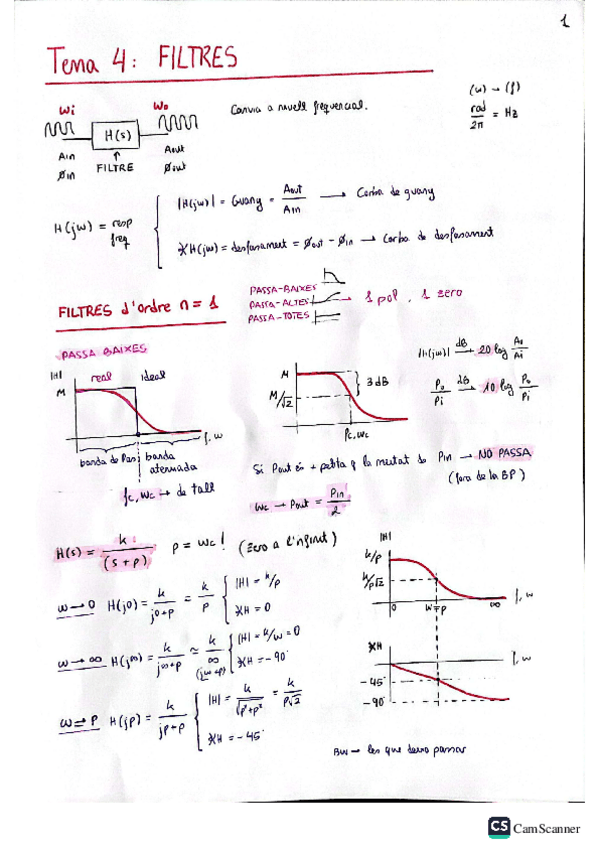 1
Tema 4: FILTRES
(w) → (f)
rad/2π = Hz
Wi
Wo
Canvia a nivell freqüencial.
H(s)
Ain
Aout
FILTRE
Øin
Øout
H(jw) = resp freq
|H(jw)| = Guany = Aout/Ain → Corba de guany
∡H(jw) = desfasament = Øout - Øin → Corba de desfasament
FILTRES d'ordre n=1
PASSA-BAIXES
PASSA-ALTES
PASSA-TOTES
1 pol, 1 zero
PASSA BAIXES
|H|
real
ideal
M
f, w
banda de Pas
banda atenuada
fc, wc → de tall
M
M/√2
3dB
fc, wc
|H(jw)| dB→ 20 log Ao/Ai
Po/Pi dB→ 10 log Po/Pi
Si Pout és + petita q la meitat de Pin → NO PASSA
(fora de la BP)
wc → Pout = Pin/2
H(s) = k/(s+p)
p = wc! (zero a l'infinit)
w→0 H(j0) = k/(j0+p) = k/p
|H| = k/p
∡H = 0
w→∞ H(j∞) = k/(j∞+p) ≈ k/∞
(jw+p)
|H| = k/w = 0
∡H = -90°
w→p H(jp) = k/(jp+p)
|H| = k/√(p²+p²) = k/(p√2)
∡H = -45°
|H|
k/p
k/p√2
0
w=p
∞
f, w
∡H
f, w
-45°
-90°
BW → les que deixo passar
CS CamScanner